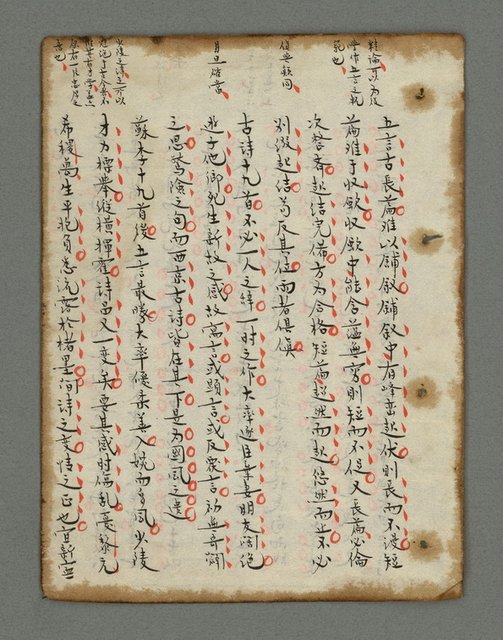 論可以為後
學作五古之軌
範也
五言古長篇難以鋪敘鋪敘中有峰巒起伏則長而不漫短
篇難于收歛收歛中能含蘊無窮則短而不促又長篇必倫
次整齊起結完備方為合格短篇超然而起悠然而止不必
別綴起結苟反其位兩者俱僨
古詩十九首不必一人之辭一時之作大率逐臣棄妻朋友闊絕
月旦確當
遊子他鄉死生新故之感或寓言或顯言或反覆言初無奇闢
之思驚險之句而西京古詩皆在其下是為國風之遺
蘇李十九首後五言最勝大率優柔善入婉而多風少陵
少陵之詩之所以
才力標舉縱橫揮霍詩品又一變矣要其感時傷亂憂黎元
希稷卨生平抱負悉流露於楮墨間詩之變情之正也宜新